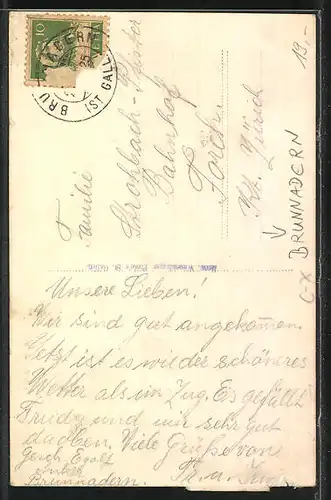 10
BRUNNADERN
(ST. GALLEN)
19,-
Familie
Strohbach-
Bahnhof
Forch
Kt. Zürich
↓
BRUNNADERN
Unsere Lieben!
Wir sind gut angekommen.
Jetzt ist es wieder schöneres
Wetter als im Zug. Es gefällt
Frida und mir sehr gut
da oben. Viele Grüße von
Brunnadern.